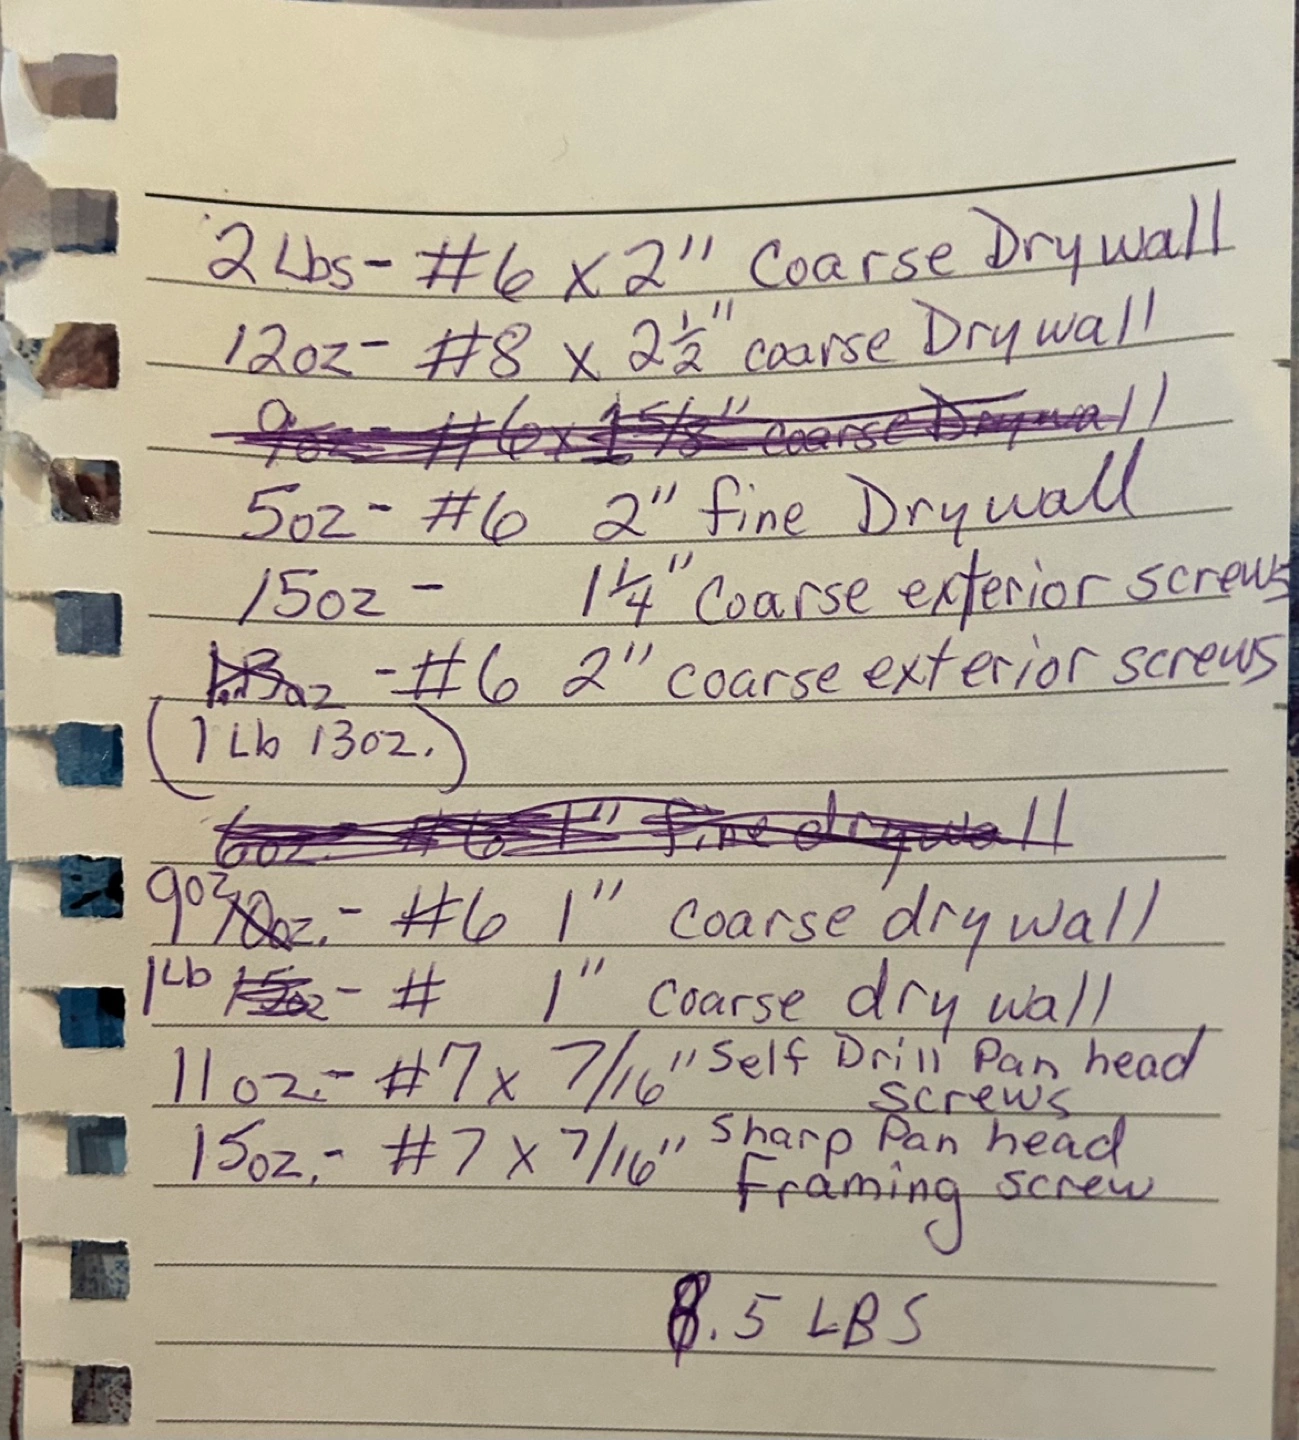 2 Lbs - #6 x 2" Coarse Drywall
12oz - #8 x 2 1/2" coarse Drywall
9oz - #6 x 1 5/8" coarse Drywall
5oz - #6 2" fine Drywall
15oz - 1 1/4" Coarse exterior screws
13oz - #6 2" coarse exterior screws
(1 Lb 13oz.)
6oz. #6 1" fine drywall
9oz 10oz. - #6 1" coarse drywall
1Lb 15oz - # 1" coarse drywall
11oz. - #7 x 7/16" Self Drill Pan head
screws
15oz. - #7 x 7/16" Sharp Pan head
Framing screw
8.5 LBS